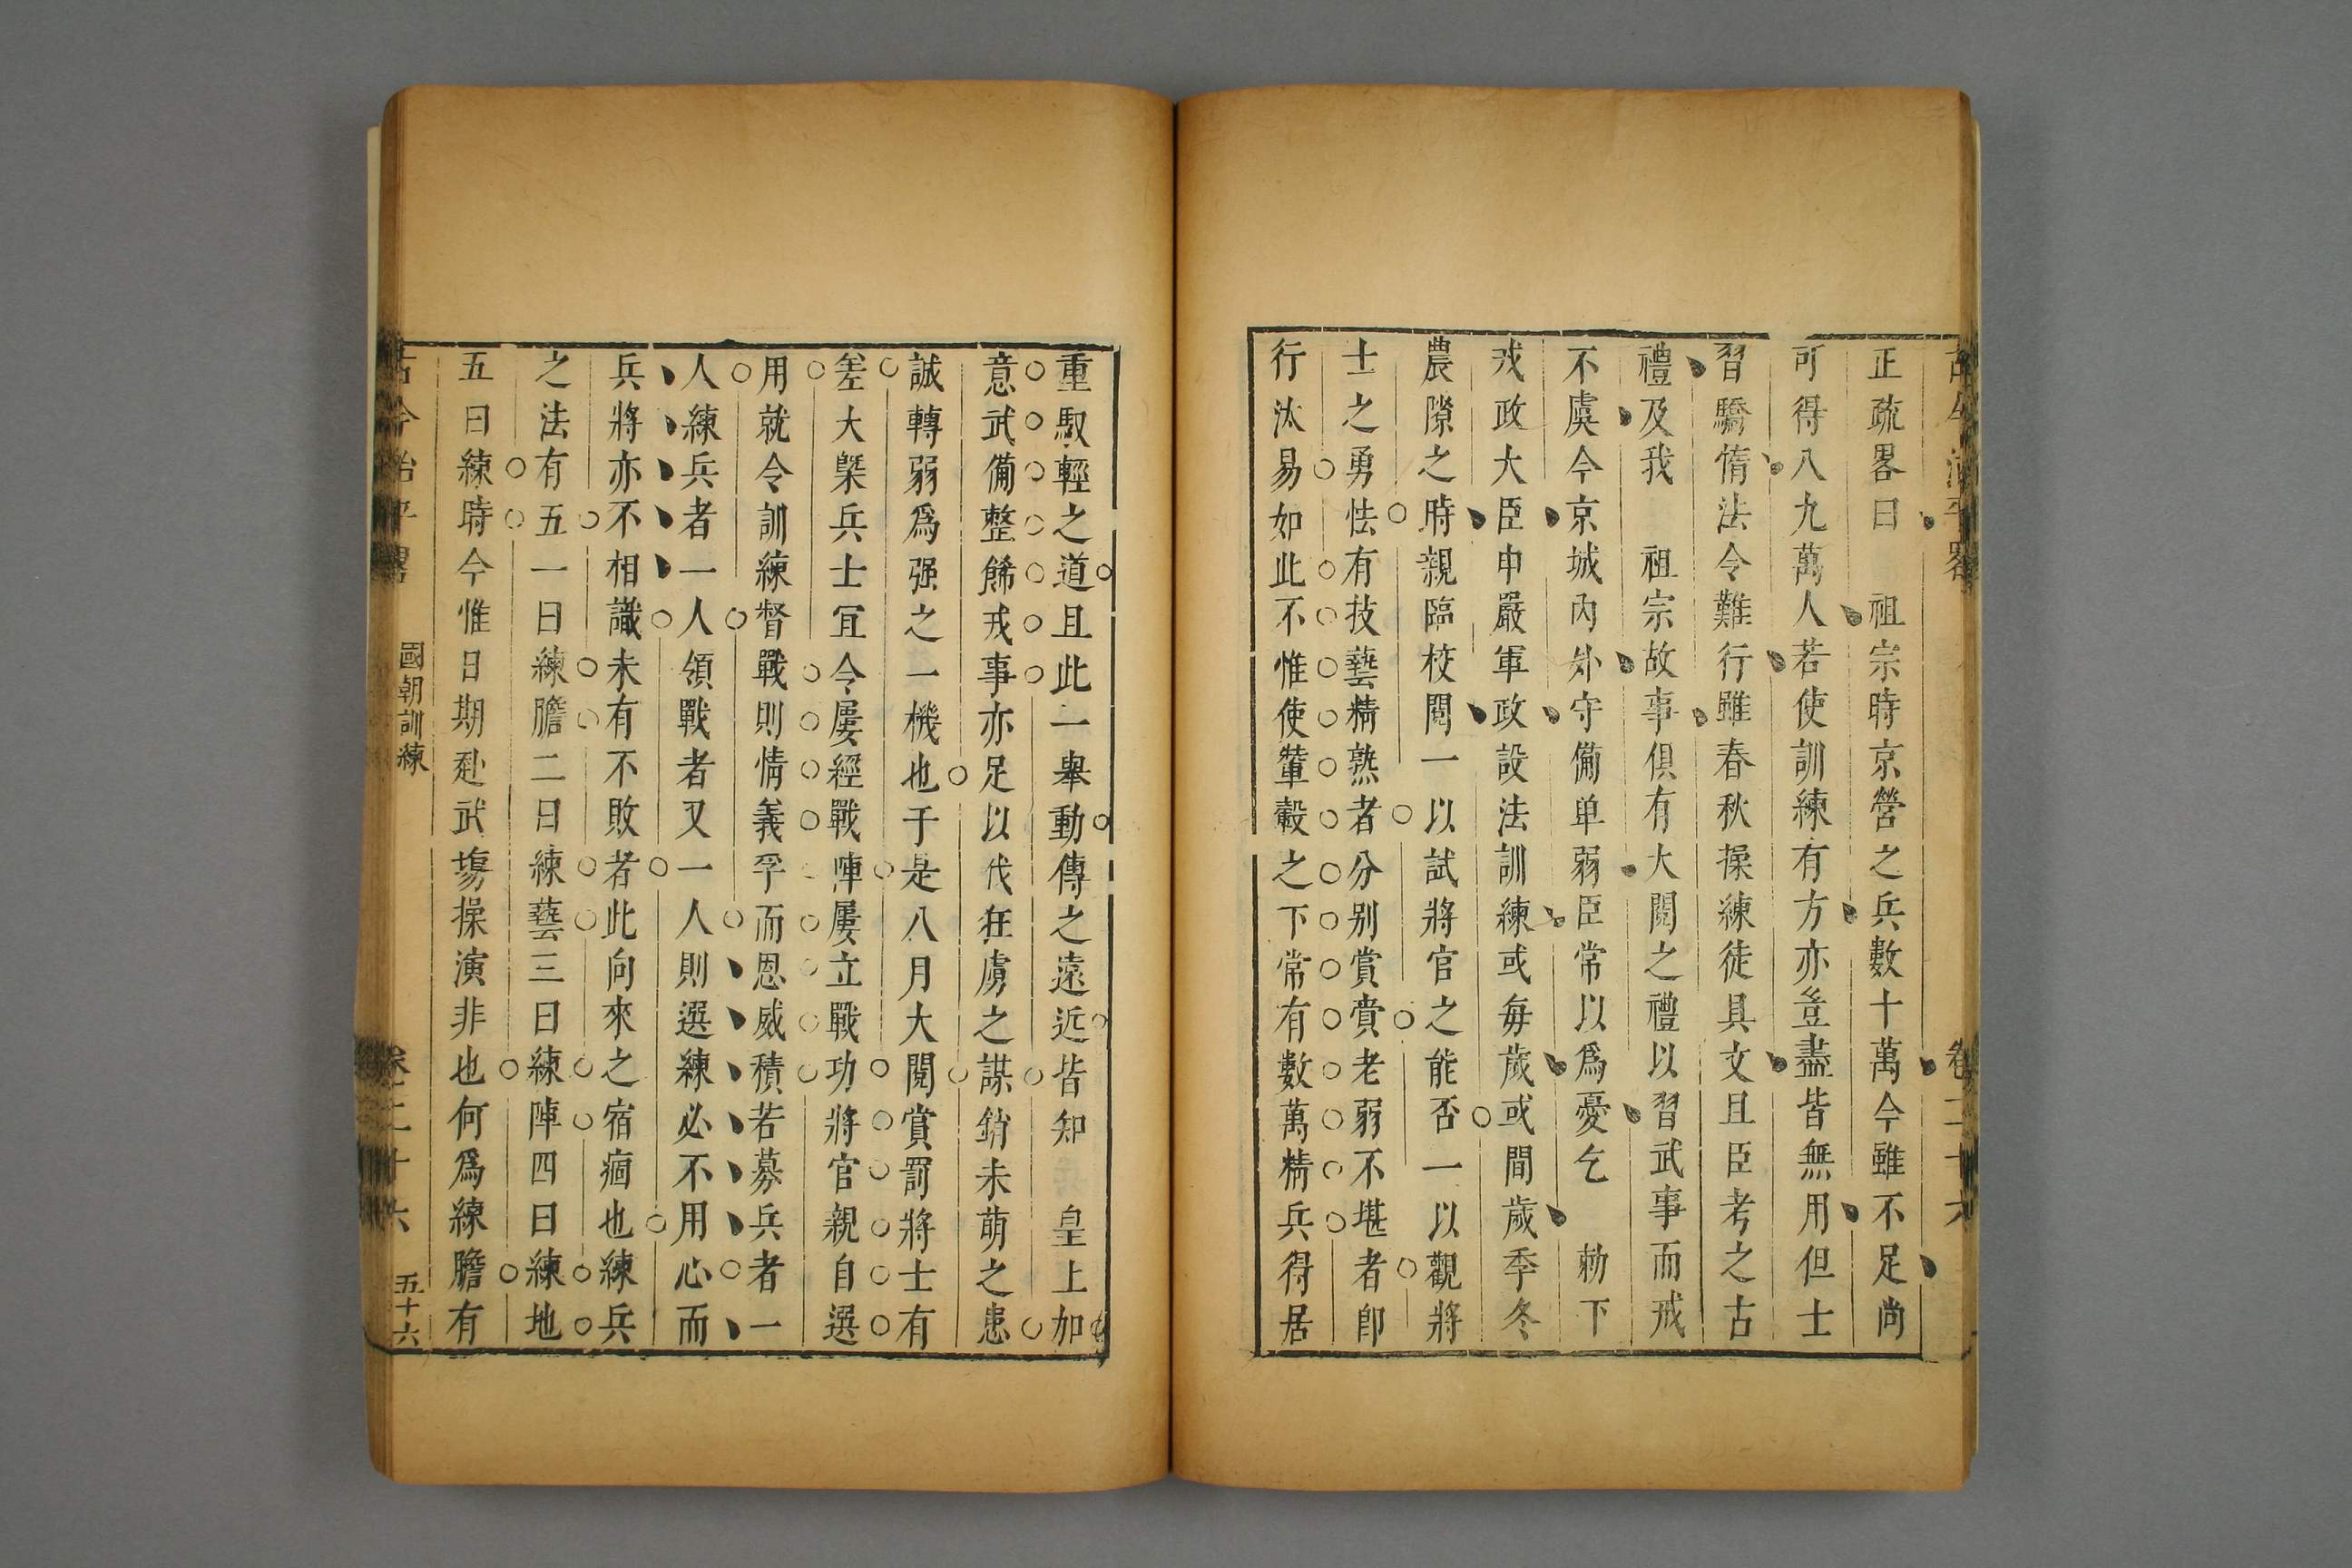 古今治平畧 卷二十六
正疏畧曰 祖宗時京營之兵數十萬今雖不足尚
可得八九萬人若使訓練有方亦豈盡皆無用但士
習驕惰法令難行雖春秋操練徒具文且臣考之古
禮及我 祖宗故事俱有大閱之禮以習武事而戒
不虞今京城內外守備单弱臣常以爲憂乞 勅下
戎政大臣申嚴軍政設法訓練或每歲或間歲季冬
農隙之時親臨校閱一以試將官之能否一以觀將
士之勇怯有技藝精熟者分别賞賚老弱不堪者卽
行汰易如此不惟使輦轂之下常有數萬精兵得居
重馭輕之道且此一舉動傳之遠近皆知 皇上加
意武備整飭戎事亦足以伐狂虜之謀銷未萌之患
誠轉弱爲强之一機也于是八月大閱賞罰將士有
差大槩兵士宜令屢經戰陣屢立戰功將官親自選
用就令訓練督戰則情義孚而恩威積若募兵者一
人練兵者一人領戰者又一人則選練必不用心而
兵將亦不相識未有不敗者此向來之宿痼也練兵
之法有五一曰練膽二曰練藝三曰練陣四曰練地
五曰練時今惟日期赴武塲操演非也何爲練膽有
古今治平畧 國朝訓練 卷二十六 五十六